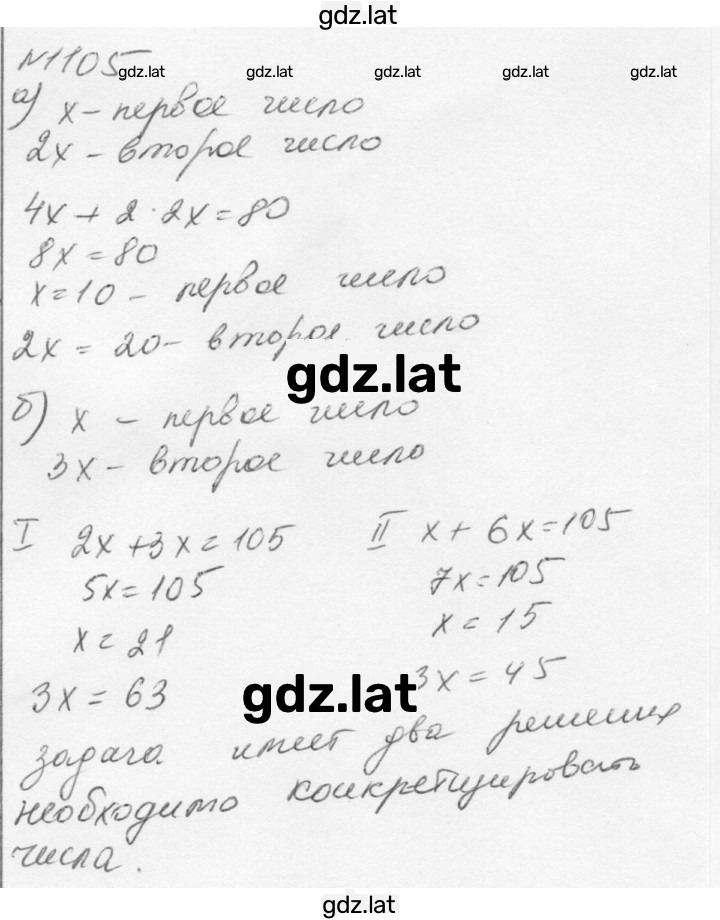 gdz.lat
№1105
gdz.lat gdz.lat gdz.lat gdz.lat gdz.lat
а) x - первое число
2x - второе число
4x + 2 · 2x = 80
8x = 80
x = 10 - первое число
2x = 20 - второе число
gdz.lat
б) x - первое число
3x - второе число
I 2x + 3x = 105 II x + 6x = 105
5x = 105 7x = 105
x = 21 x = 15
3x = 63 3x = 45
gdz.lat
задача имеет два решения
необходимо конкретизировать
числа.
gdz.lat